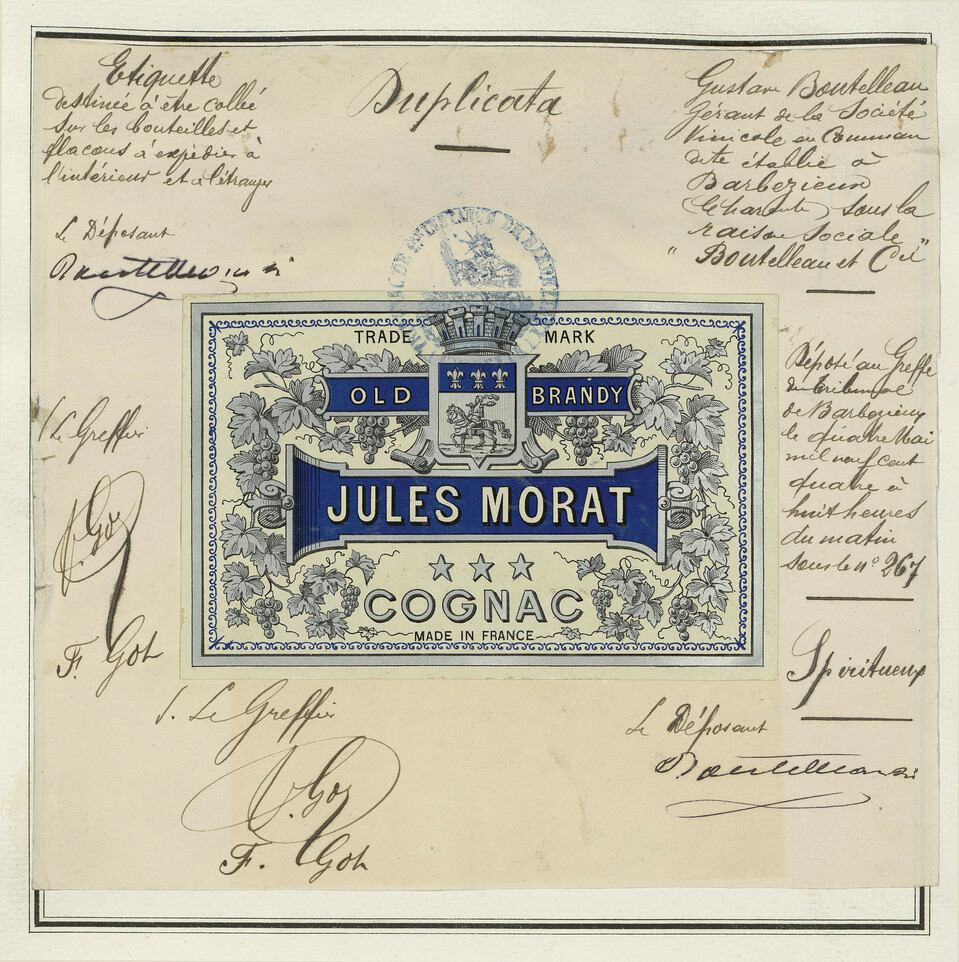 Duplicata
Etiquette
destinée à être collée
sur les bouteilles et
flacons à expédier à
l'intérieur et à l'étranger
Le Déposant
Gustave Boutelleau
Gérant de la Société
Vinicole en Comman
dite établie à
Barbezieux
(Charente) sous la
raison sociale
"Boutelleau et Cie"
TRADE MARK
OLD BRANDY
JULES MORAT
COGNAC
MADE IN FRANCE
Déposé au Greffe
du tribunal
de Barbezieux
le quatre Mai
mil neuf cent
quatre à
huit heures
du matin
sous le n° 267
Spiritueux
Le Greffier
F. Got
Le Greffier
F. Got
Le Déposant